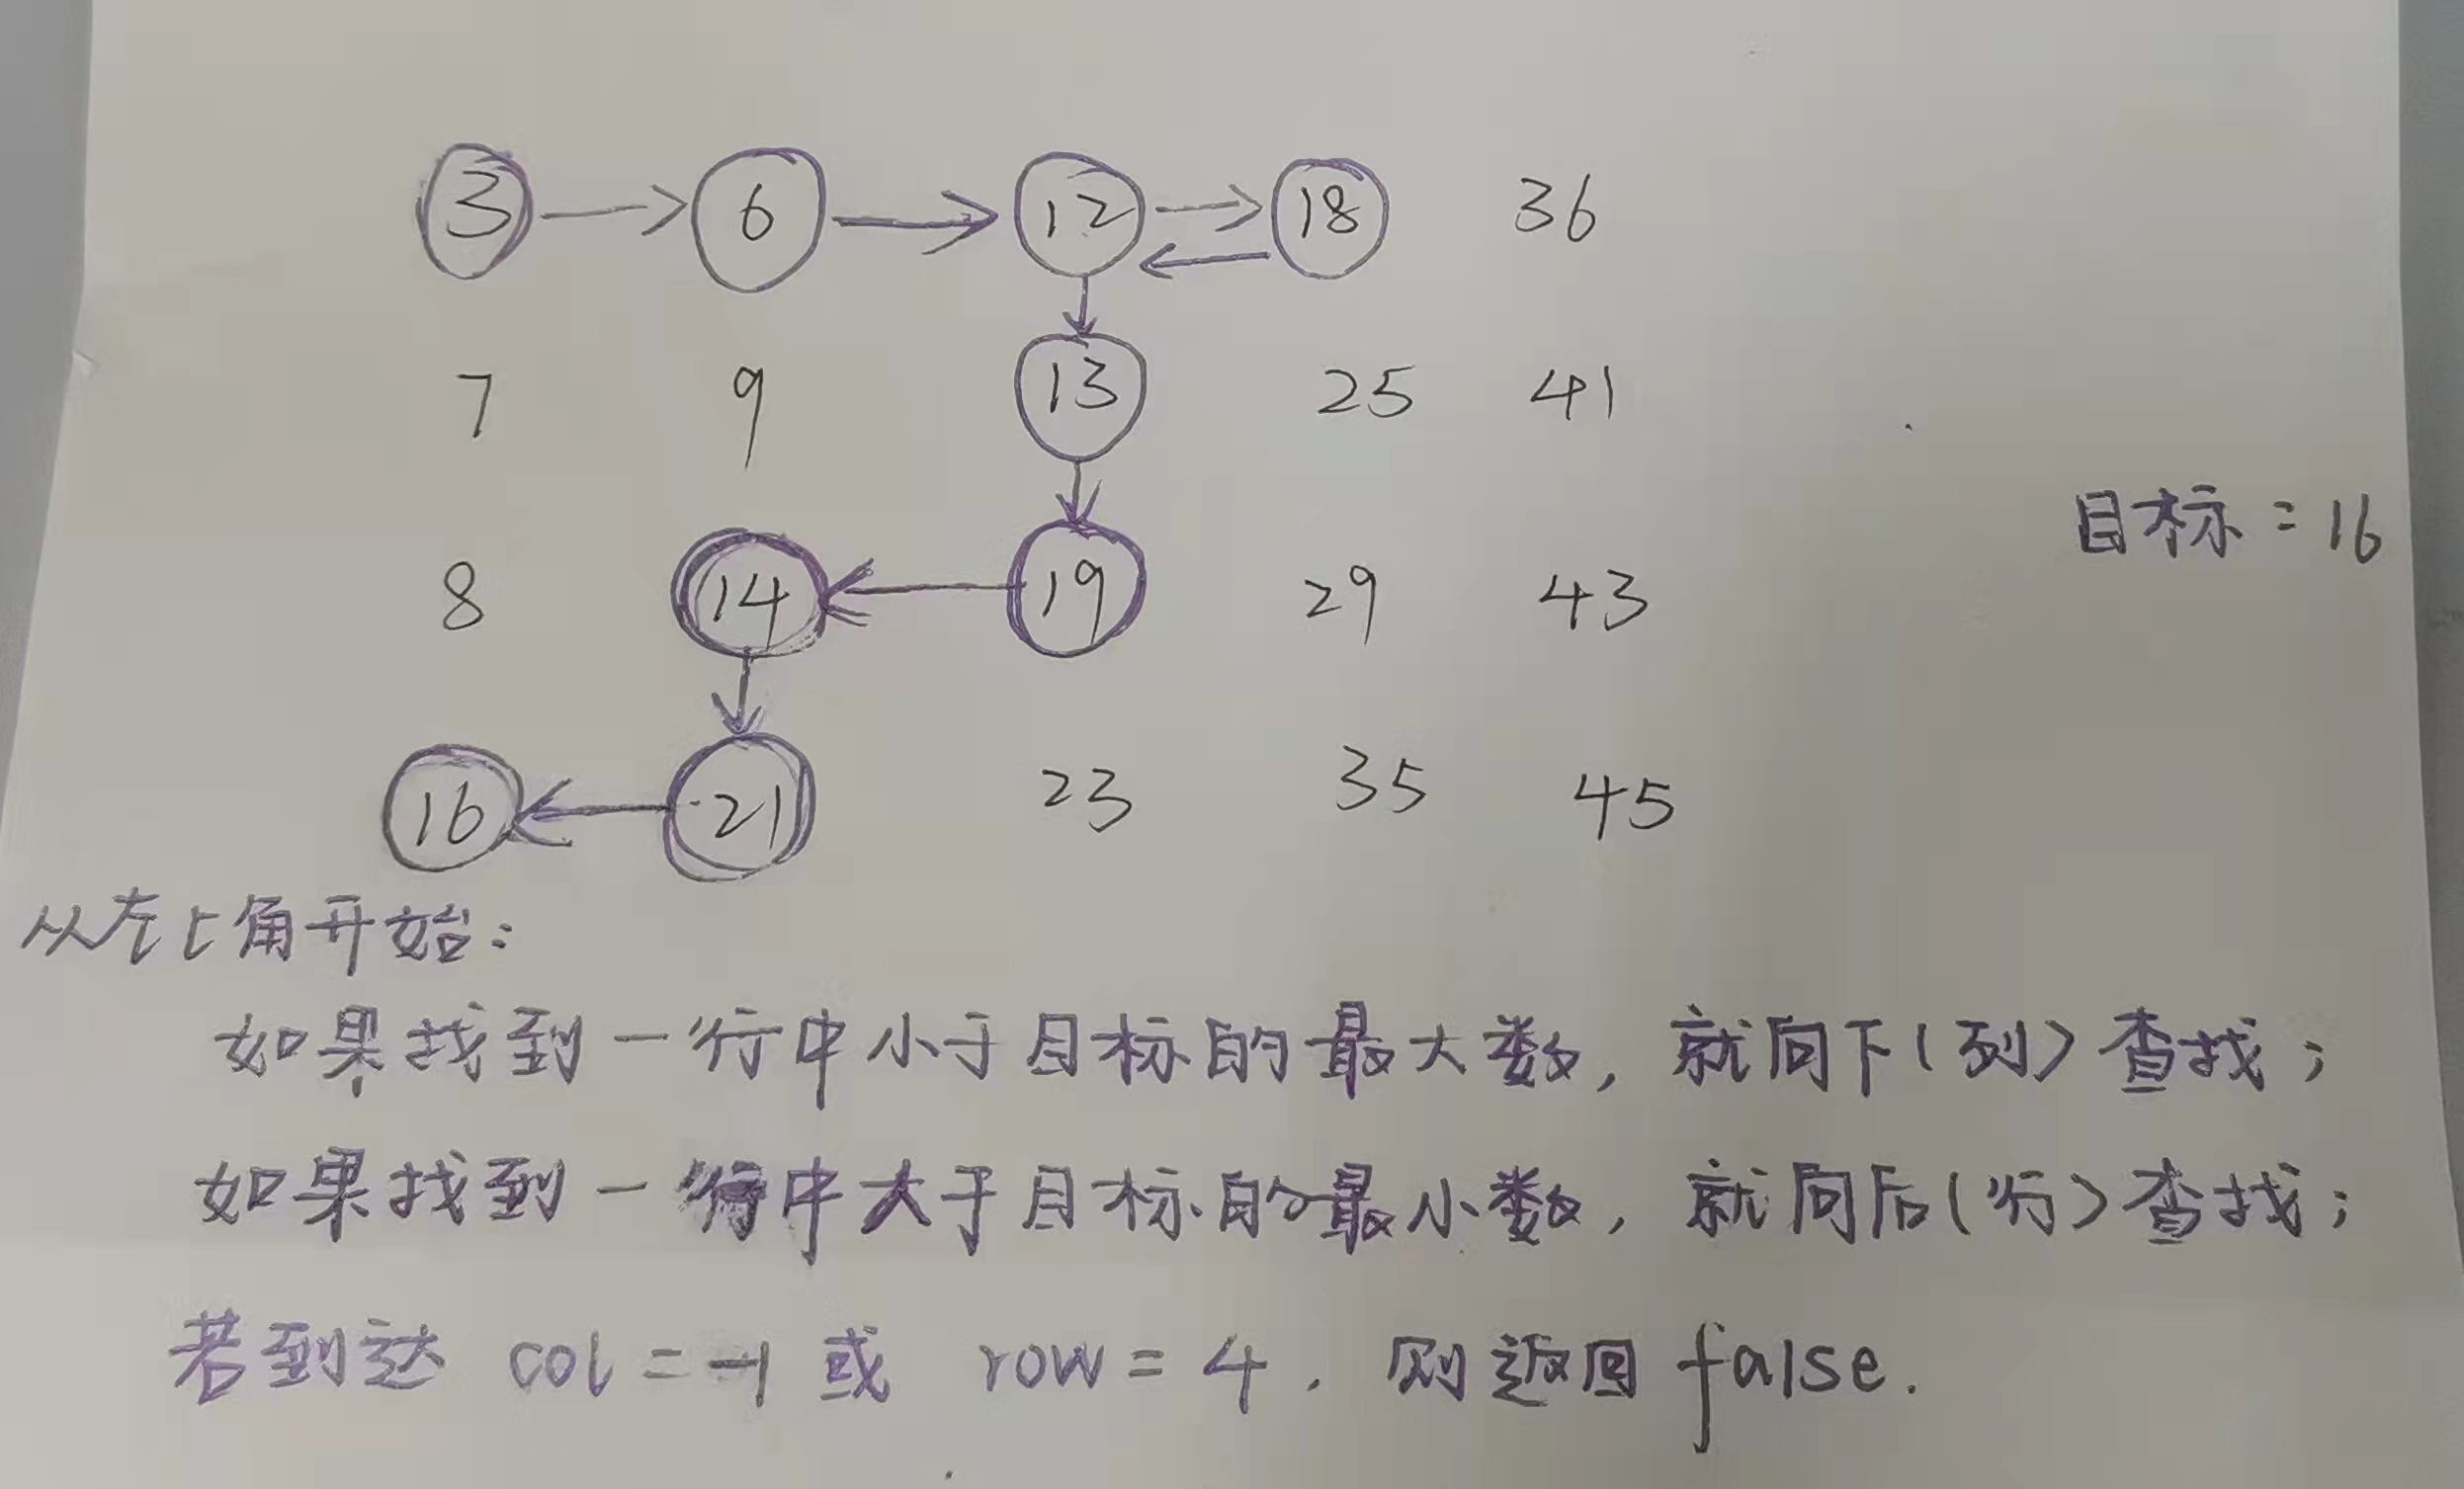 3 6 12 18 36
7 9 13 25 41
目标:16
8 14 19 29 43
16 21 23 35 45
从左上角开始:
如果找到一行中小于目标的最大数,就向下(列)查找;
如果找到一行中大于目标的最小数,就向后(行)查找;
若到达 col=-1 或 row=4,则返回 false.